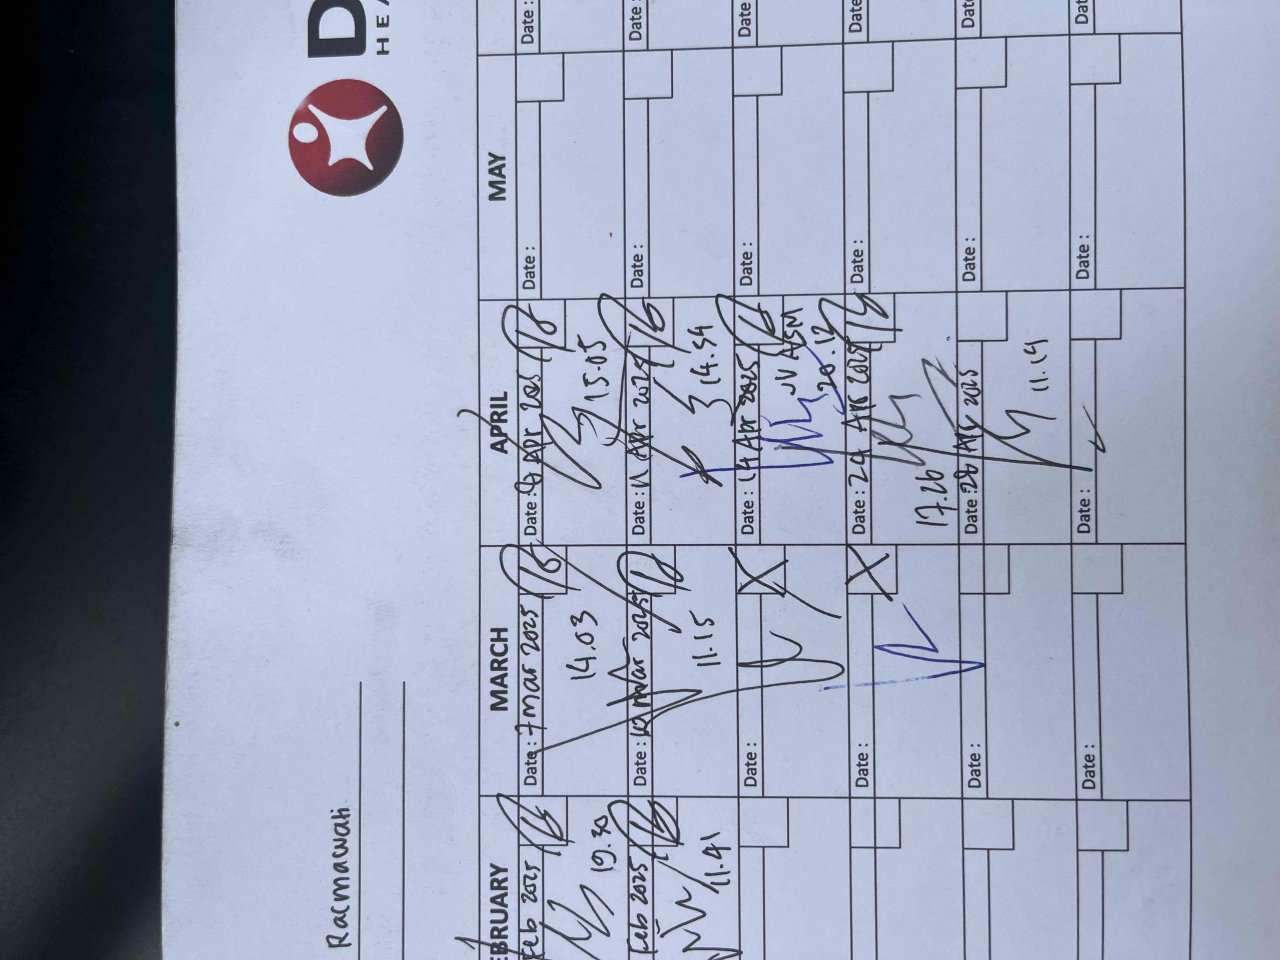 D
HEA
Racmawati
EBRUARY
MARCH
APRIL
MAY
Feb 2025
19.30
Date : 7 Mar 2025
14.03
Date : 9 Apr 2025
15.05
Date :
Date :
Feb 2025
11.41
Date : 10 Mar 2025
11.15
Date : 11 Apr 2025
14.54
Date :
Date :
Date :
Date : 14 Apr 2025
JV ASM
20.12
Date :
Date :
Date :
Date : 24 Apr 2025
17.26
Date :
Date :
Date :
Date : 28 Apr 2025
11.14
Date :
Date :
Date :
Date :
Date :
Dat